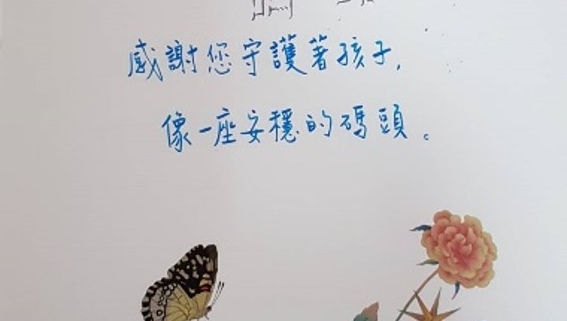 感謝您守護著孩子,
像一座安穩的碼頭。